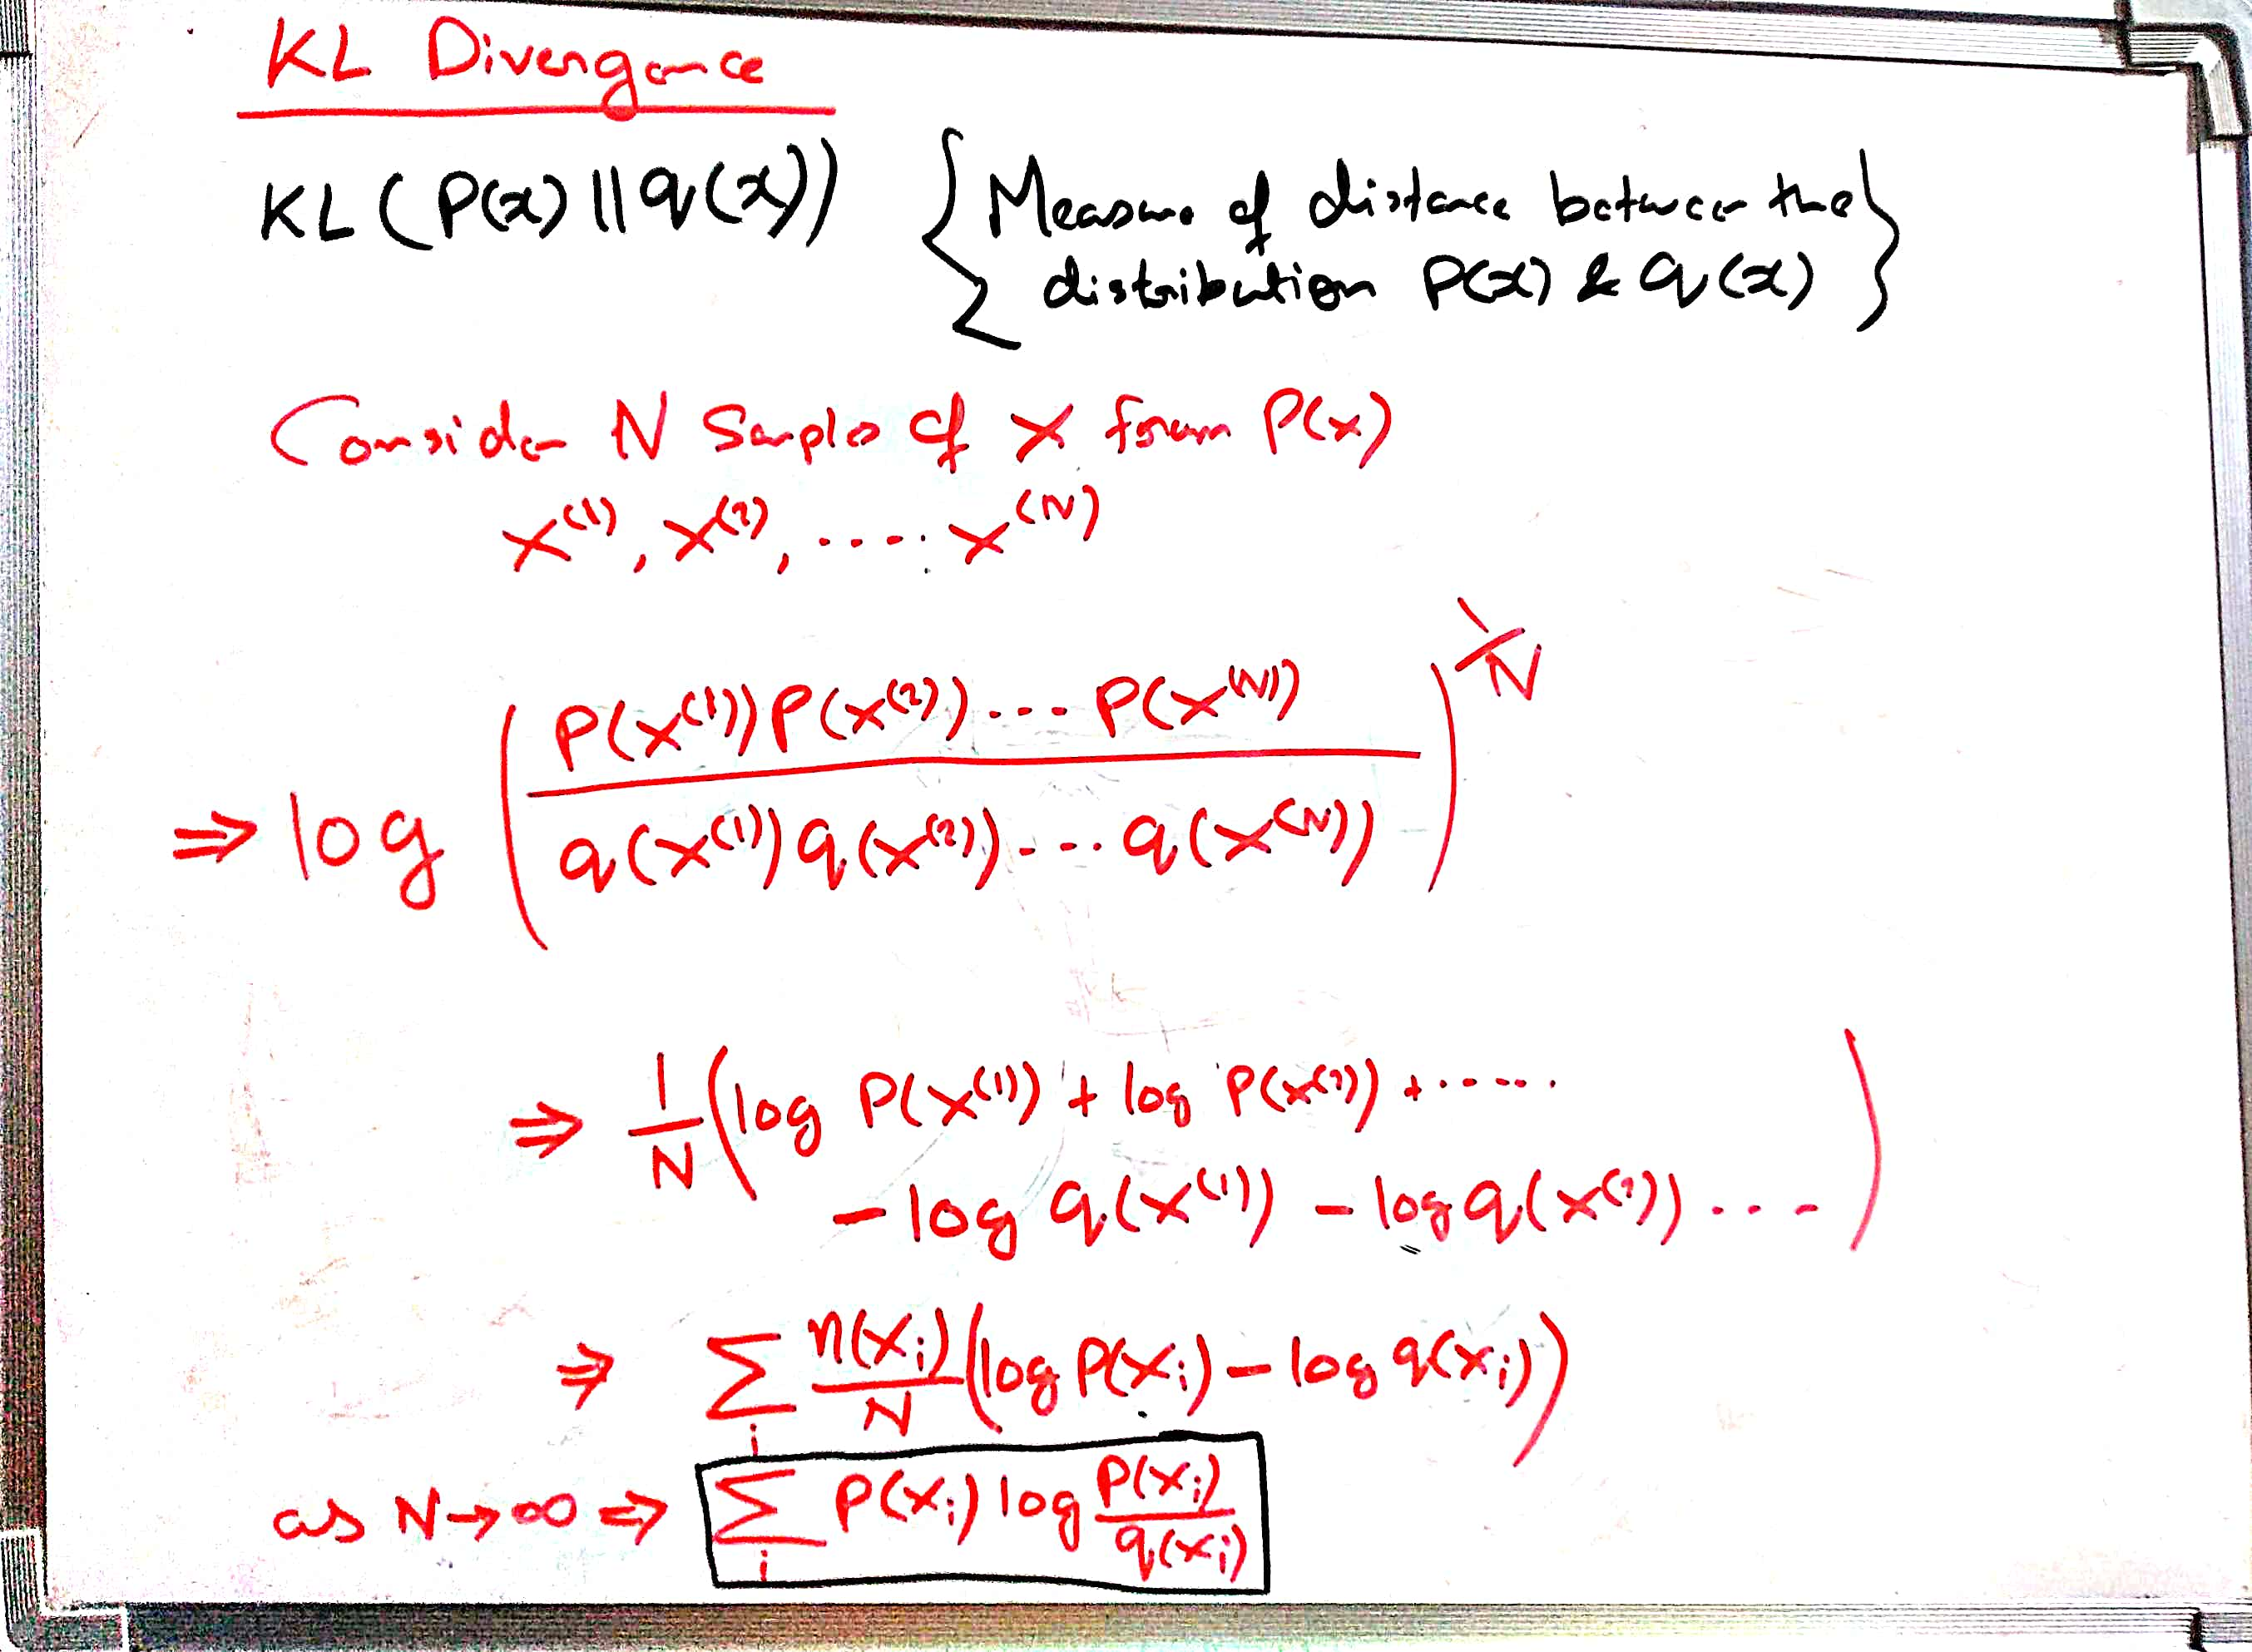 KL Divergance
KL (P(x) || q(x)) { Measure of distance between the
distribution P(x) & q(x) }
Consider N Samples of x from P(x)
x⁽¹⁾, x⁽²⁾, ..... x⁽ᴺ⁾
⇒ log ( P(x⁽¹⁾) P(x⁽²⁾) ... P(x⁽ᴺ⁾) / q(x⁽¹⁾) q(x⁽²⁾) ... q(x⁽ᴺ⁾) )^(1/N)
⇒ 1/N ( log P(x⁽¹⁾) + log P(x⁽²⁾) + ......
- log q(x⁽¹⁾) - log q(x⁽²⁾) .... )
⇒ Σ_i n(x_i)/N ( log P(x_i) - log q(x_i) )
as N → ∞ ⇒ Σ_i P(x_i) log P(x_i)/q(x_i)